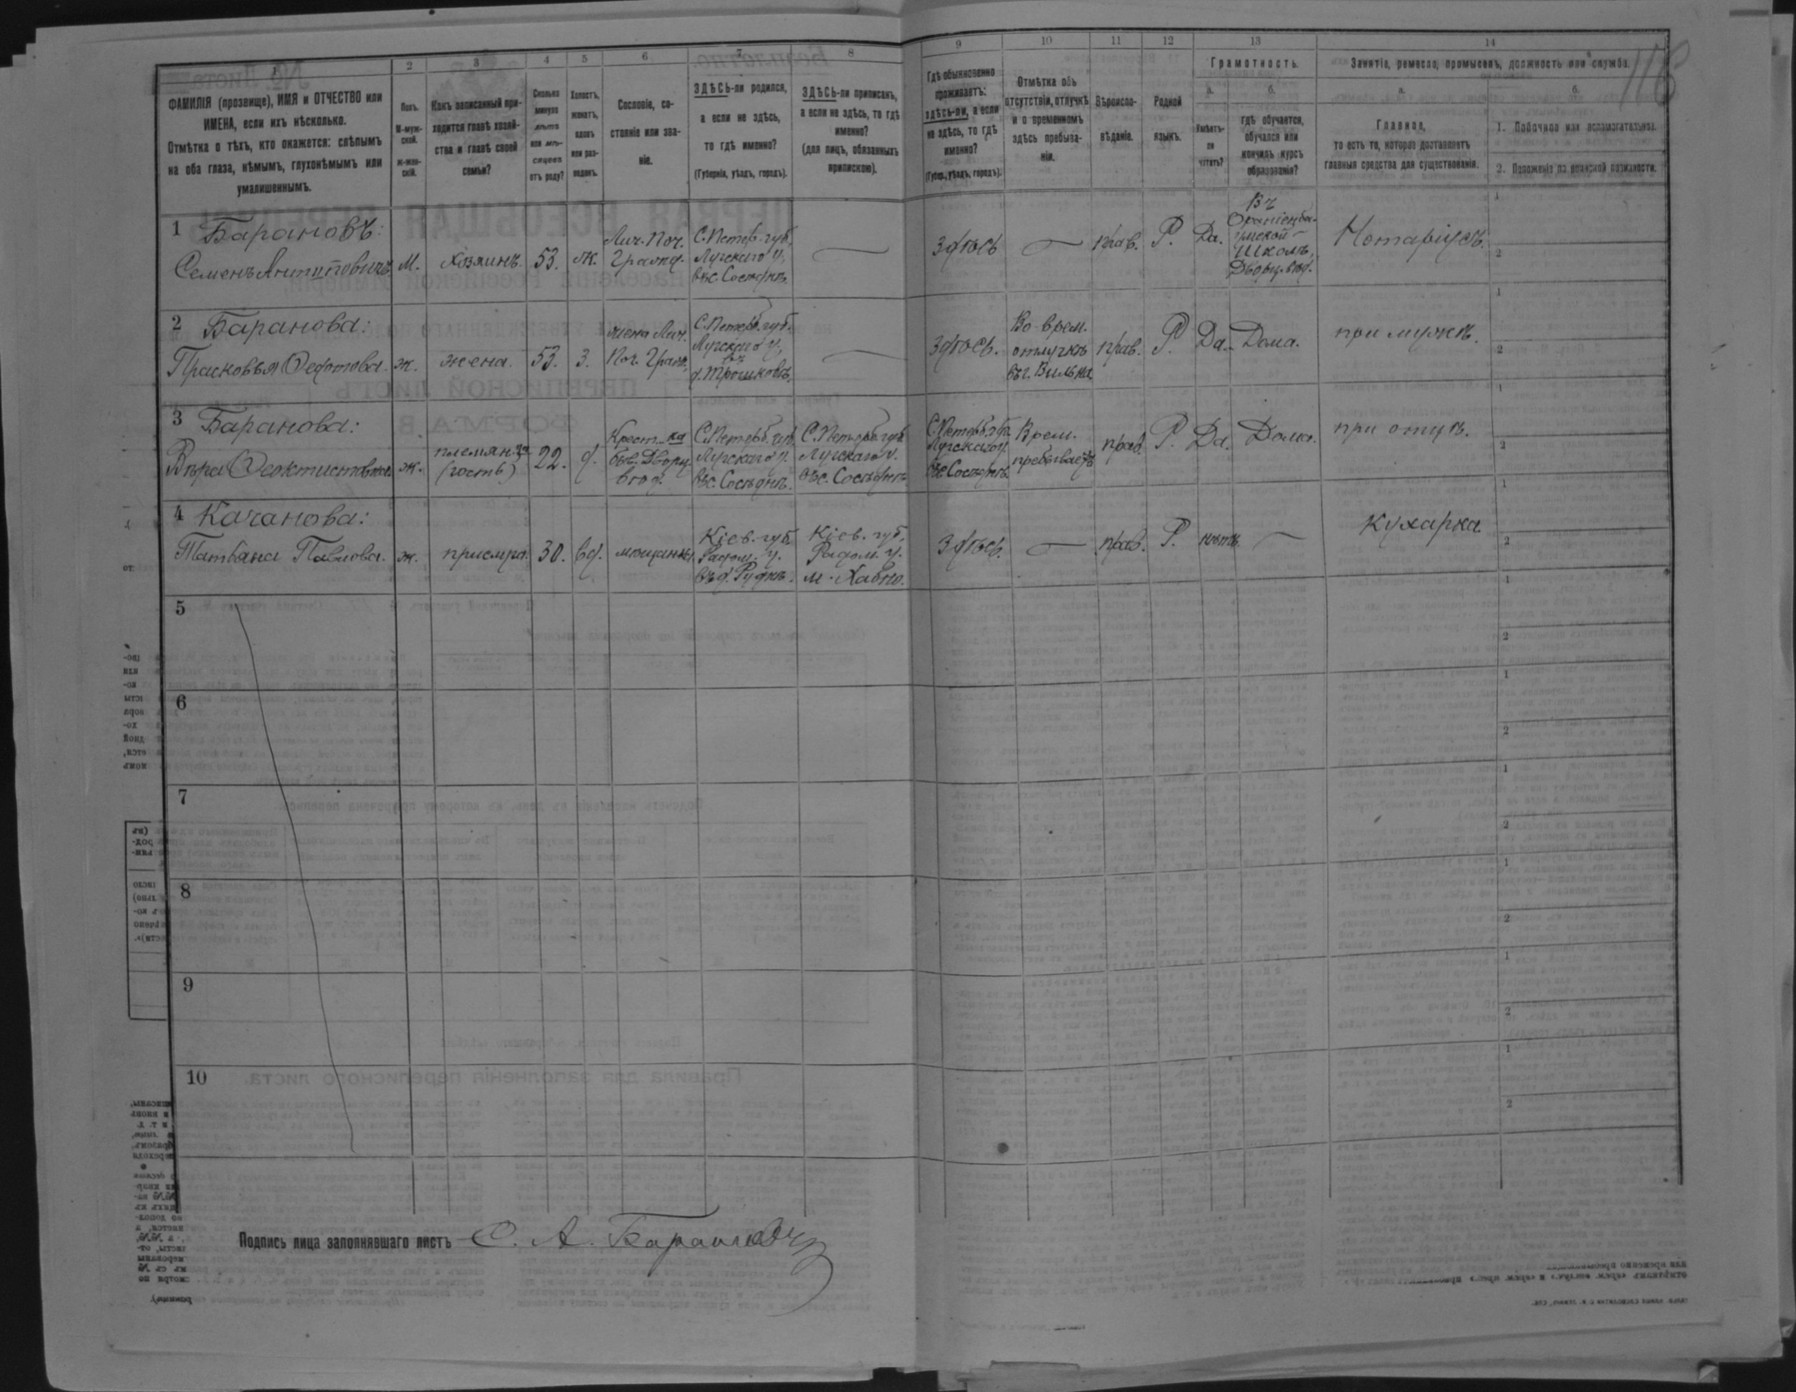 116
1 2 3 4 5 6 7 8 9 10 11 12 13 14
ФАМИЛІЯ (прозвище), ИМЯ и ОТЧЕСТВО или
ИМЕНА, если ихъ нѣсколько.
Отмѣтка о тѣхъ, кто окажется: слѣпымъ
на оба глаза, нѣмымъ, глухонѣмымъ или
умалишеннымъ.
Полъ.
М-муж-
ской.
ж-жен-
скій.
Какъ записанный при-
ходится главѣ хозяй-
ства и главѣ своей
семьи?
Сколько
минуло
лѣтъ
или мѣ-
сяцевъ
отъ роду?
Холостъ,
женатъ,
вдовъ
или раз-
веденъ.
Сословіе, со-
стояніе или зва-
ніе.
ЗДѢСЬ-ли родился,
а если не здѣсь,
то гдѣ именно?
(Губернія, уѣздъ, городъ).
ЗДѢСЬ-ли приписанъ,
а если не здѣсь, то гдѣ
именно?
(для лицъ, обязанныхъ
припискою).
Гдѣ обыкновенно
проживаетъ:
здѣсь-ли, а если
не здѣсь, то гдѣ
именно?
(Губер., уѣздъ, городъ).
Отмѣтка объ
отсутствіи, отлучкѣ
и о временномъ
здѣсь пребыва-
ніи.
Вѣроиспо-
вѣданіе.
Родной
языкъ.
Грамотность.
а.
Умѣетъ-
ли
читать?
б.
гдѣ обучается,
обучался или
кончилъ курсъ
образованія?
Занятіе, ремесло, промыселъ, должность или служба.
а.
Главное,
то есть то, которое доставляетъ
главныя средства для существованія.
б.
1. Побочное или вспомогательное.
2. Положеніе по воинской повинности.
1 Барановъ:
Семенъ Антиповичъ
м.
хозяинъ
53.
ж.
Лич. Поч.
Гражд.
С. Петерб. губ.
Лугскаго у.
въ с. Сосѣднѣ
здѣсь
прав.
Р.
Да.
Въ
Ораніенба-
умской
Школѣ,
Дворц. вѣд.
Нотаріусъ.
2 Баранова:
Прасковья Ѳедотова.
ж.
жена.
53.
З.
жена Лич.
Поч. Гражд.
С. Петерб. губ.
Лугскаго у.
въ
д. Трошковѣ,
здѣсь.
Во врем.
отлучкѣ
въ г. Вильна
прав.
Р.
Да.
Дома.
при мужѣ.
3 Баранова:
Вѣра Ѳеоктистовна
ж.
племян-ца
(гость)
22.
д.
Крест-ка
быв. Дворц.
вѣд.
С. Петерб. губ.
Лугскаго у.
въ с. Сосѣднѣ.
С. Петерб. губ.
Лугскаго у.
въ с. Сосѣднѣ
С. Петерб. губ.
Лугскаго у.
въ с. Сосѣднѣ
Врем.
пребываетъ
прав.
Р.
Да.
Дома.
при отцѣ.
4 Качанова:
Татьяна Павлова.
ж.
прислуга.
30.
вд.
мѣщанка,
Кіев. губ.
Радом. у.
въ д. Руднѣ.
Кіев. губ.
Радом. у.
м. Хабно.
здѣсь.
прав.
Р.
нѣтъ.
Кухарка
5
6
7
8
9
10
Подпись лица заполнявшаго листъ С. А. Барановъ